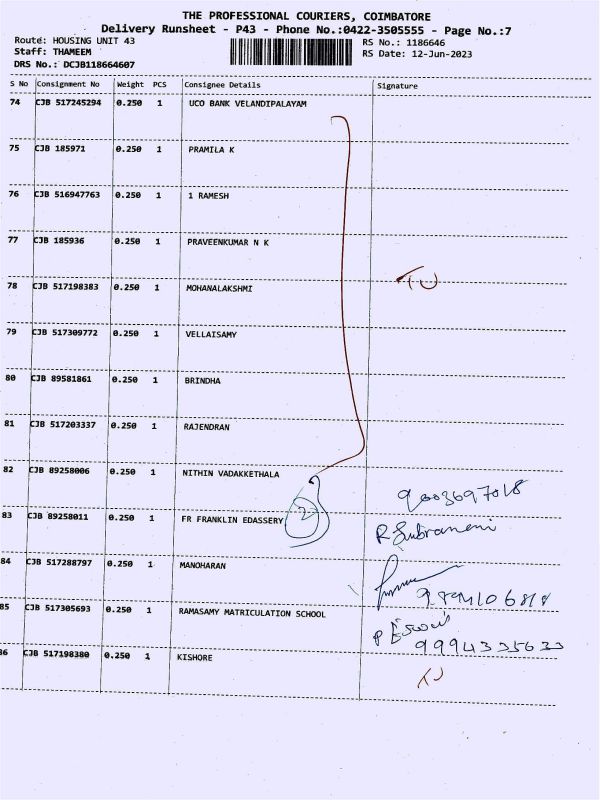 THE PROFESSIONAL COURIERS, COIMBATORE
Delivery Runsheet - P43 - Phone No.:0422-3505555 - Page No.:7
Route: HOUSING UNIT 43 RS No.: 1186646
Staff: THAMEEM RS Date: 12-Jun-2023
DRS No.: DCJB118664607
S No Consignment No Weight PCS Consignee Details Signature
74 CJB 517245294 0.250 1 UCO BANK VELANDIPALAYAM
75 CJB 185971 0.250 1 PRAMILA K
76 CJB 516947763 0.250 1 1 RAMESH
77 CJB 185936 0.250 1 PRAVEENKUMAR N K
78 CJB 517198383 0.250 1 MOHANALAKSHMI
79 CJB 517309772 0.250 1 VELLAISAMY
80 CJB 89581861 0.250 1 BRINDHA
81 CJB 517203337 0.250 1 RAJENDRAN
82 CJB 89258006 0.250 1 NITHIN VADAKKETHALA
83 CJB 89258011 0.250 1 FR FRANKLIN EDASSERY 2
84 CJB 517288797 0.250 1 MANOHARAN
85 CJB 517305693 0.250 1 RAMASAMY MATRICULATION SCHOOL
9994335633
86 CJB 517198380 0.250 1 KISHORE